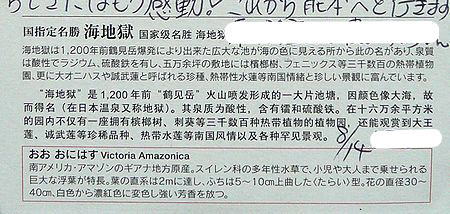 らしさにはもう感動! これから熊本へ行きます
国指定名勝 海地獄 国家级名胜 海地獄
海地獄は1,200年前鶴見岳爆発により出来た広大な池が海の色に見える所から此の名があり、泉質
は酸性でラジウム、硫酸鉄を有し、五万余坪の敷地には檳榔樹、フェニックス等三千数百の熱帯植物
園、更に大オニハスや誠武蓮と呼ばれる珍種、熱帯性水蓮等の南国情緒と珍しい景観に富んでいます。
"海地獄"是1,200年前"鹤见岳"火山喷发形成的一大片池塘,因颜色像大海,故
而得名(在日本温泉又称地狱)。其泉质为酸性,含有镭和硫酸铁。在十六万余平方米
的园内不仅有一座拥有槟榔树、刺葵等三千数百种热带植物的植物园,还能观赏到大王
莲、诚武莲等珍稀品种、热带水莲等南国风情以及各种罕见景观。
8/14
おお おにはす Victoria Amazonica
南アメリカ・アマゾンのギアナ地方原産。スイレン科の多年性水草で、小児や大人まで乗せられる
巨大な浮葉が特長。葉の直系は2mに達し、ふちは5〜10cm上曲した〈たらい〉型。花の直径30〜
40cm、白色から濃紅色に変色し強い芳香を放つ。